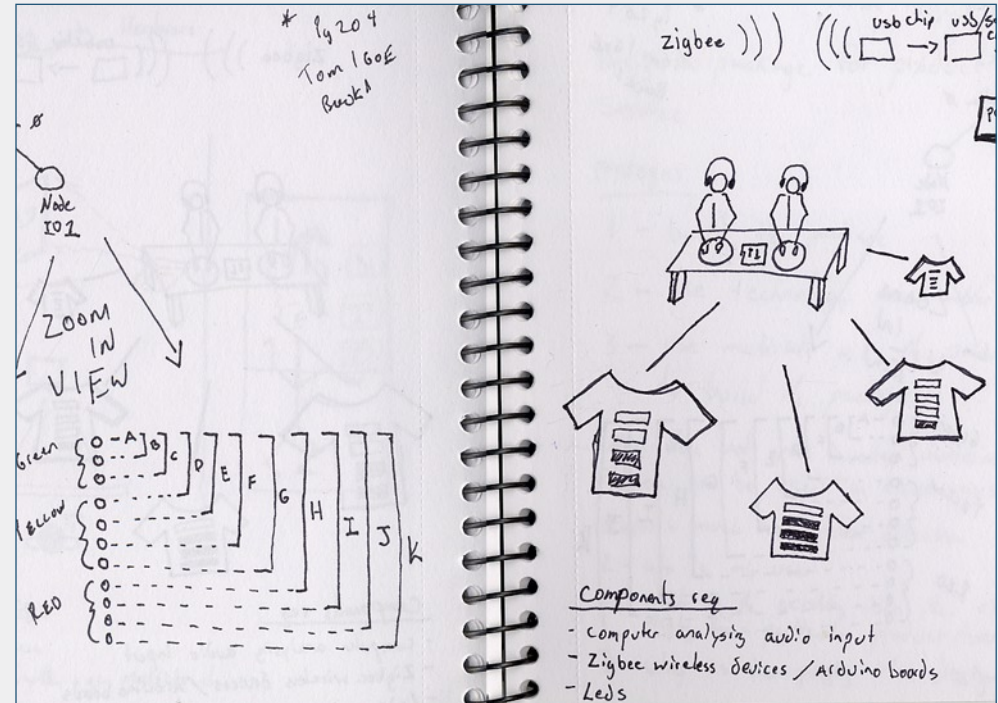 * Pg 204
Tom IGOE
Book A
ø
Node
IO1
ZOOM
IN
VIEW
Green
Yellow
RED
A
B
C
D
E
F
G
H
I
J
K
zigbee
usb chip
Components req
- computer analysing audio input
- Zigbee wireless devices / Arduino boards
- Leds